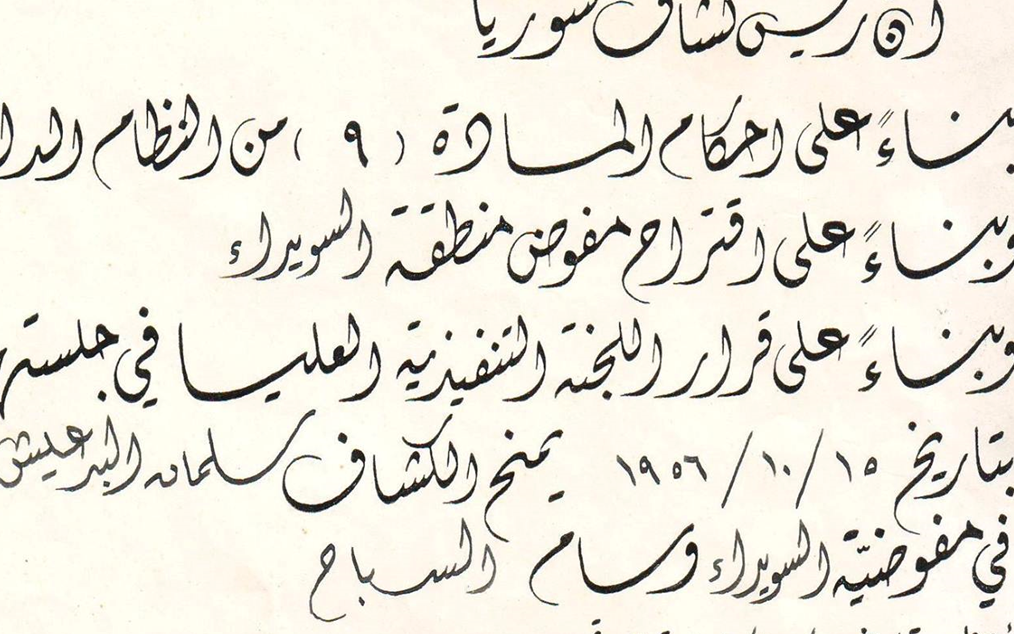 ان رئيس كشاف سوريا
بناءً على احكام المادة ( ٩ ) من النظام الدا
وبناءً على اقتراح مفوض منطقة السويداء
وبناءً على قرار اللجنة التنفيذية العليا في جلسته
بتاريخ ١٥ / ١٠ / ١٩٥٦ يمنح الكشاف سلمان البدعيش
في مفوضيّة السويداء وسام السباح